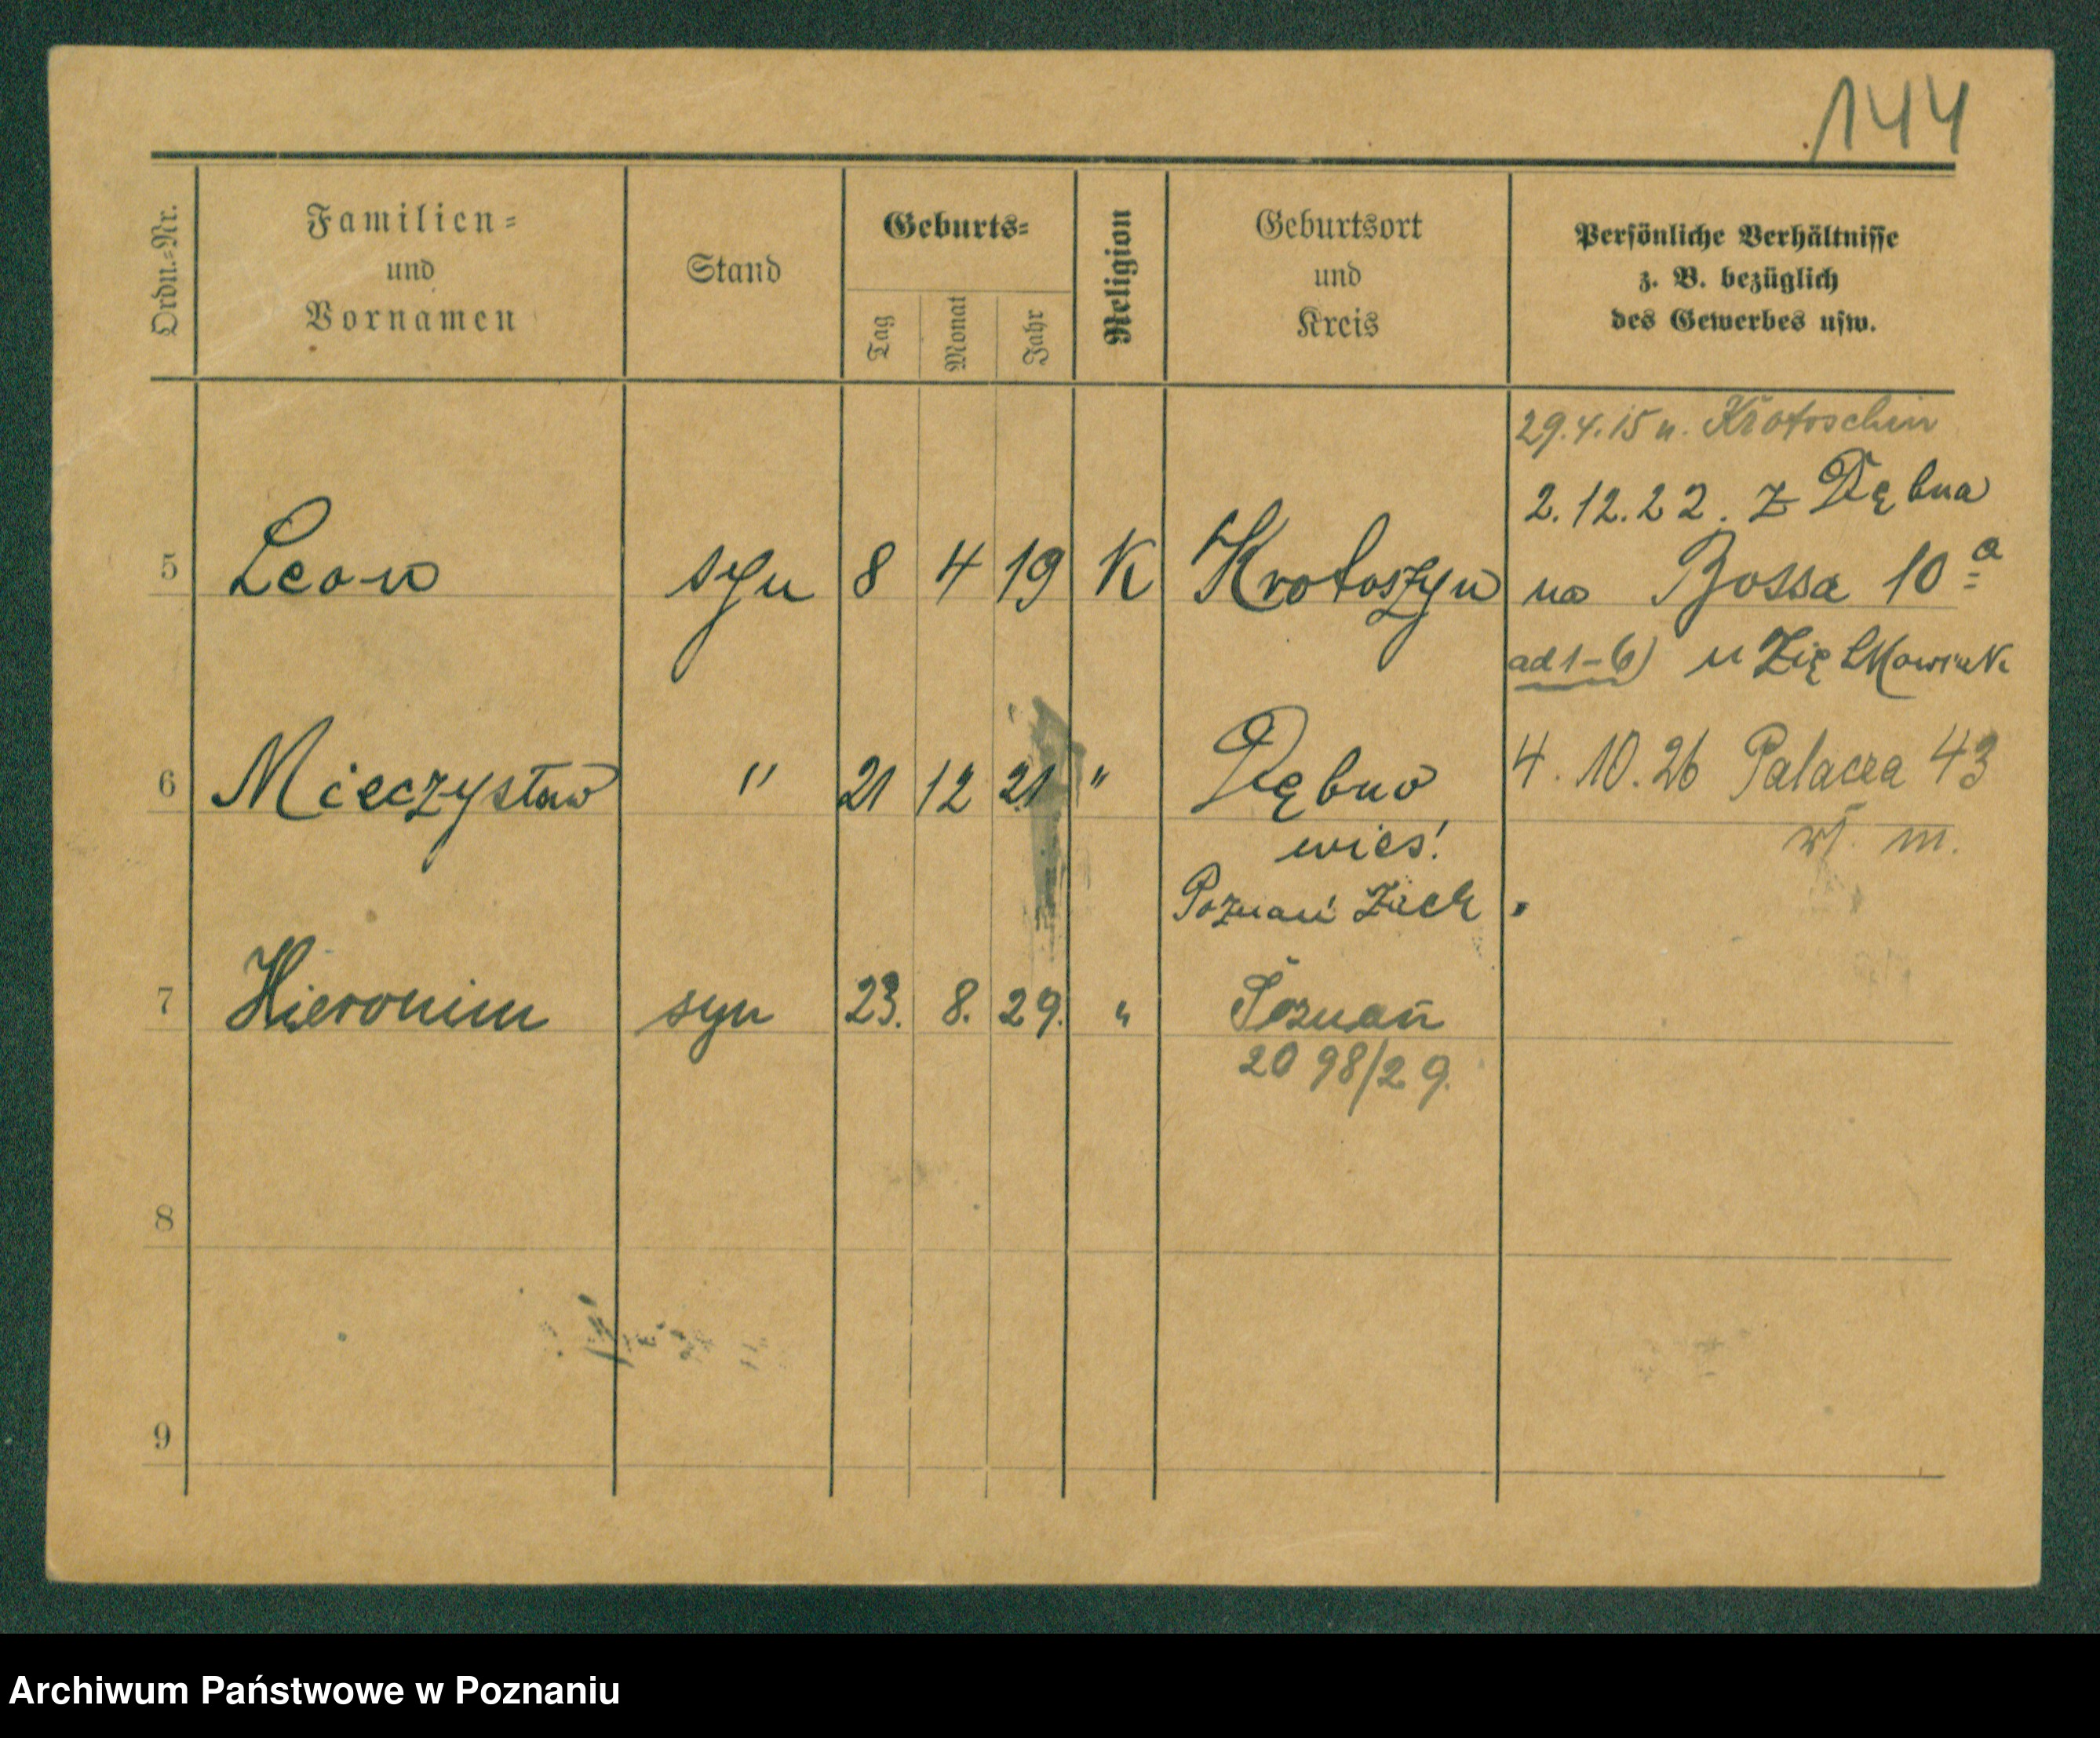 144
Ordn.-Nr. Familien- und Vornamen Stand Geburts- Tag Monat Jahr Religion Geburtsort und Kreis Persönliche Verhältnisse z. B. bezüglich des Gewerbes usw.
29.4.15 n. Krotoschin
2.12.22. z Dębna
5 Leon syn 8 4 19 K Krotoszyn na Bossa 10 a
ad 1-6) u
6 Mieczysław " 21 12 21 " Dębno 4.10.26 Palacza 43
wieś wł. m.
Poznań Zach.
7 Hieronim syn 23. 8. 29. " Poznań
2098/29.
8
9
Archiwum Państwowe w Poznaniu